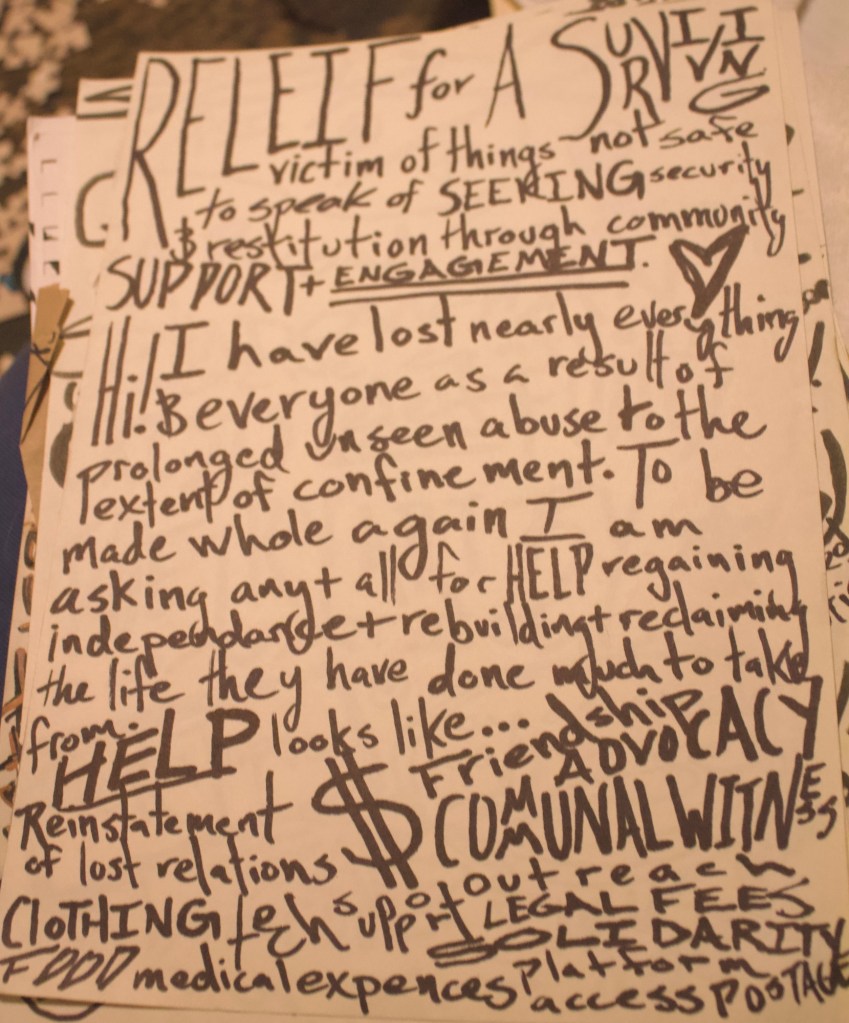 RELEIF for A SURVIVING
victim of things not safe
to speak of SEEKING security
& restitution through community
SUPPORT + ENGAGEMENT.
Hi! I have lost nearly everything
& everyone as a result of
prolonged unseen abuse to the
extent of confinement. To be
made whole again I am
asking any + all for HELP regaining
independance + rebuilding + reclaiming
the life they have done much to take
from. HELP looks like... Friendship
ADVOCACY
Reinstatement $ COMMUNAL WITNESS
of lost relations
outreach
CLOTHING tech support LEGAL FEES
SOLIDARITY
FOOD medical expences platform
access POSTAGE